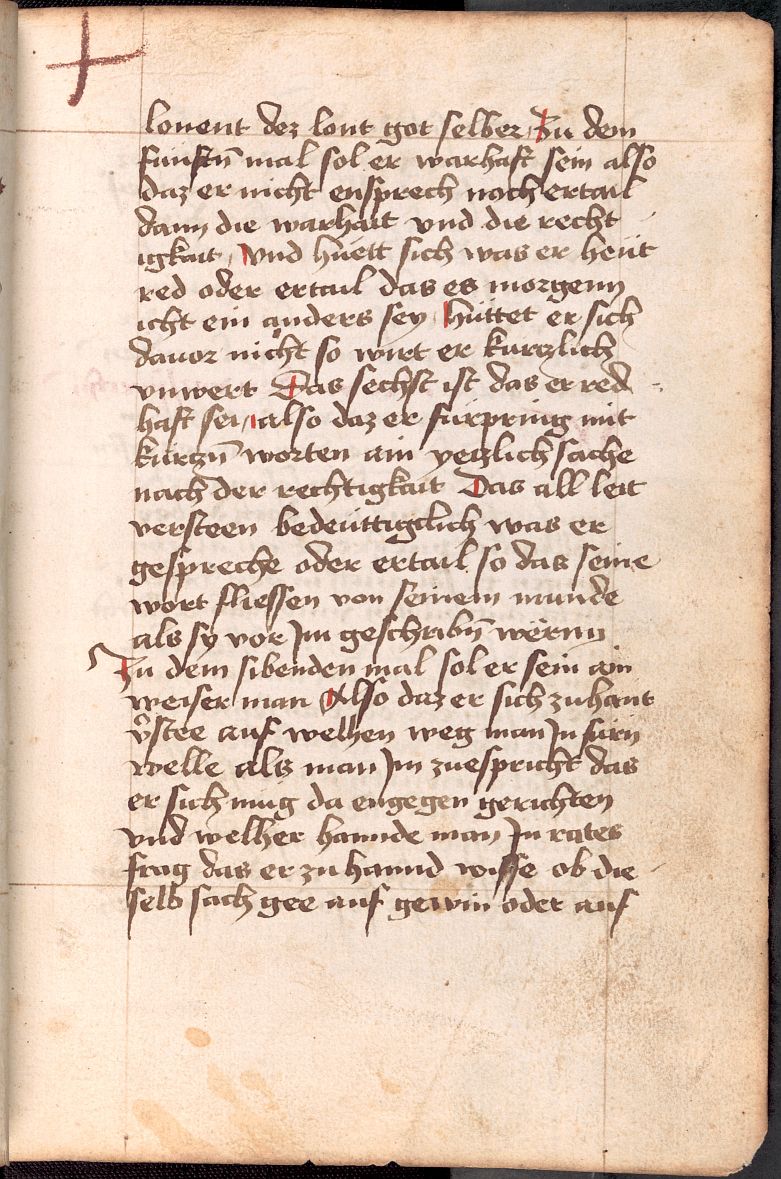 lonent dez lont got selber Zu dem
funften̄ mal sol er warhaft sein also
daz er nicht ensprech noch ertail
dann die warhait vnd die recht
igkait / vnd huett sich was er heut
red oder ertail das es morgenn
icht ein anders sey hüttet er sich
dauor nicht so wirt er kurczlich
vnwert Das sechst ist das er red
haft sei / also daz er furpring mit
kurczn̄ worten ain yetzlich sache
nach der rechtigkait Das all leit
versteen bedeuttigclich was er
gespreche oder ertail so das seine
wort fliessen von seinem munde
als sy vor Jm geschribn̄ wërnn
Zu dem sibenden mal sol er sein ain
weiser man Also daz er sich zuhant
v̉stee auf welhen weg man Jn fürn
welle als man Jm zuespricht das
er sich mug da engegen gerichten
vnd welher hannde man Jn rates
frag das er zu hannd wisse ob die
selb sach gee auf gewin oder auf